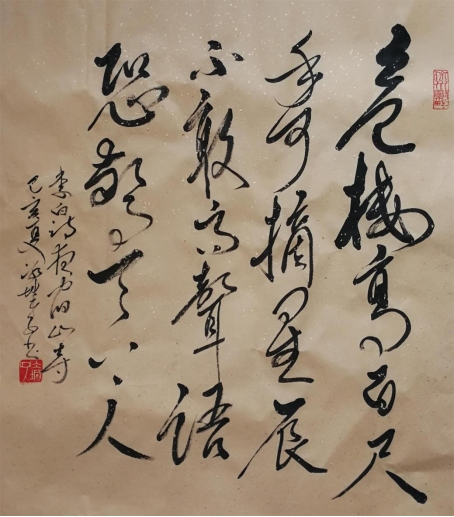 危楼高百尺
手可摘星辰
不敢高聲語
恐驚天上人
李白詩夜宿山寺
己亥夏
書